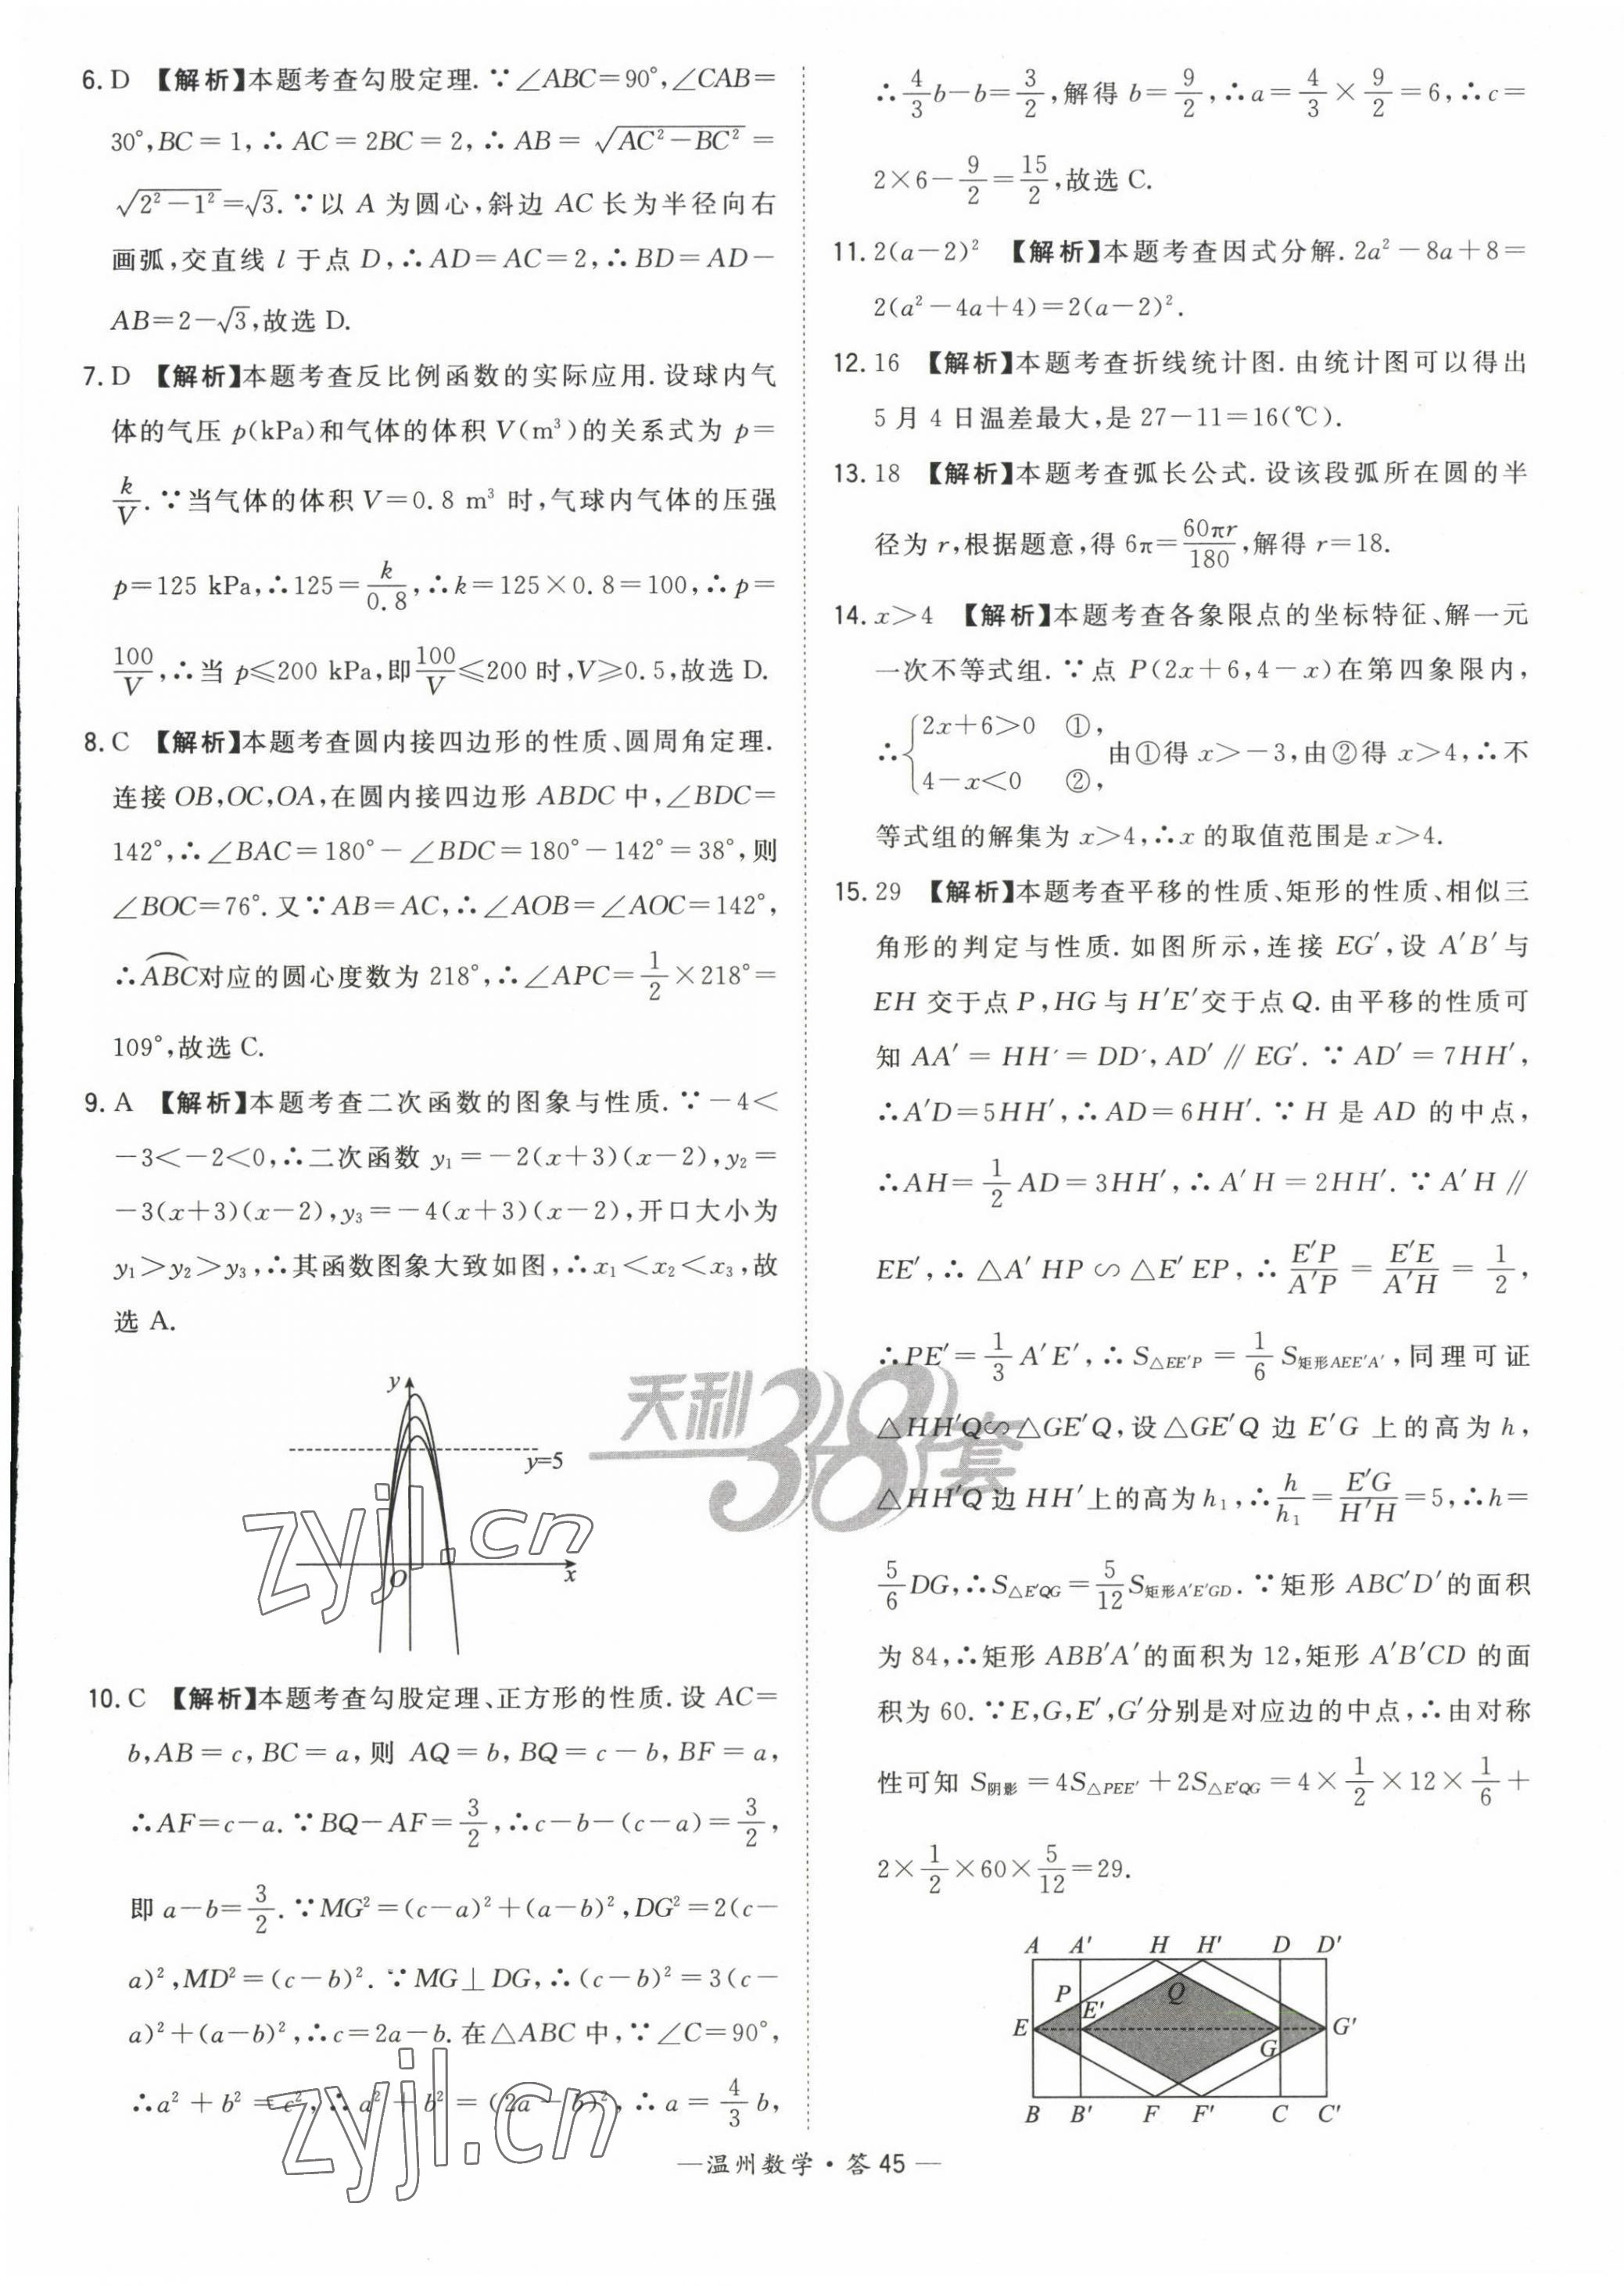 6. D 【解析】本题考查勾股定理. ∵∠ABC=90°,∠CAB=
30°,BC=1,∴AC=2BC=2,∴AB=√(AC²-BC²)=
√(2²-1²)=√3. ∵以 A 为圆心,斜边 AC 长为半径向右
画弧,交直线 l 于点 D,∴AD=AC=2,∴BD=AD-
AB=2-√3,故选 D.
7. D 【解析】本题考查反比例函数的实际应用. 设球内气
体的气压 p(kPa)和气体的体积 V(m³)的关系式为 p=
k/V. ∵当气体的体积 V=0.8 m³ 时,气球内气体的压强
p=125 kPa,∴125=k/0.8,∴k=125×0.8=100,∴p=
100/V,∴当 p≤200 kPa,即100/V≤200 时,V≥0.5,故选 D.
8. C 【解析】本题考查圆内接四边形的性质、圆周角定理.
连接 OB,OC,OA,在圆内接四边形 ABDC 中,∠BDC=
142°,∴∠BAC=180°-∠BDC=180°-142°=38°,则
∠BOC=76°. 又∵AB=AC,∴∠AOB=∠AOC=142°,
∴⌒ABC对应的圆心度数为 218°,∴∠APC=1/2×218°=
109°,故选 C.
9. A 【解析】本题考查二次函数的图象与性质. ∵-4<
-3<-2<0,∴二次函数 y₁=-2(x+3)(x-2),y₂=
-3(x+3)(x-2),y₃=-4(x+3)(x-2),开口大小为
y₁>y₂>y₃,∴其函数图象大致如图,∴x₁<x₂<x₃,故
选 A.
y
y=5
O
x
10. C 【解析】本题考查勾股定理、正方形的性质. 设 AC=
b,AB=c,BC=a,则 AQ=b,BQ=c-b,BF=a,
∴AF=c-a. ∵BQ-AF=3/2,∴c-b-(c-a)=3/2,
即 a-b=3/2. ∵MG²=(c-a)²+(a-b)²,DG²=2(c-
a)²,MD²=(c-b)². ∵MG⊥DG,∴(c-b)²=3(c-
a)²+(a-b)²,∴c=2a-b. 在△ABC 中,∵∠C=90°,
∴a²+b²=c²,∴a²+b²=(2a-b)²,∴a=4/3b,
∴4/3b-b=3/2,解得 b=9/2,∴a=4/3×9/2=6,∴c=
2×6-9/2=15/2,故选 C.
11. 2(a-2)² 【解析】本题考查因式分解. 2a²-8a+8=
2(a²-4a+4)=2(a-2)².
12. 16 【解析】本题考查折线统计图. 由统计图可以得出
5 月 4 日温差最大,是 27-11=16(℃).
13. 18 【解析】本题考查弧长公式. 设该段弧所在圆的半
径为 r,根据题意,得 6π=60πr/180,解得 r=18.
14. x>4 【解析】本题考查各象限点的坐标特征、解一元
一次不等式组. ∵点 P(2x+6,4-x)在第四象限内,
∴{2x+6>0 ①,
4-x<0 ②, 由①得 x>-3,由②得 x>4,∴不
等式组的解集为 x>4,∴x 的取值范围是 x>4.
15. 29 【解析】本题考查平移的性质、矩形的性质、相似三
角形的判定与性质. 如图所示,连接 EG′,设 A′B′与
EH 交于点 P,HG 与 H′E′交于点 Q. 由平移的性质可
知 AA′=HH′=DD′,AD′∥EG′. ∵AD′=7HH′,
∴A′D=5HH′,∴AD=6HH′. ∵H 是 AD 的中点,
∴AH=1/2AD=3HH′,∴A′H=2HH′. ∵A′H∥
EE′,∴△A′HP∽△E′EP,∴E′P/A′P=E′E/A′H=1/2,
∴PE′=1/3A′E′,∴S△EE′P=1/6S矩形AEE′A′,同理可证
△HH′Q∽△GE′Q,设△GE′Q 边 E′G 上的高为 h,
△HH′Q 边 HH′上的高为 h₁,∴h/h₁=E′G/H′H=5,∴h=
5/6DG,∴S△E′QG=5/12S矩形A′E′GD. ∵矩形 ABC′D′的面积
为 84,∴矩形 ABB′A′的面积为 12,矩形 A′B′CD 的面
积为 60. ∵E,G,E′,G′分别是对应边的中点,∴由对称
性可知 S阴影=4S△PEE′+2S△E′QG=4×1/2×12×1/6+
2×1/2×60×5/12=29.
A A′ H H′ D D′
P Q
E E′ G G′
B B′ F F′ C C′
天利38套
zyjl.cn
zyjl.cn
—温州数学·答 45—